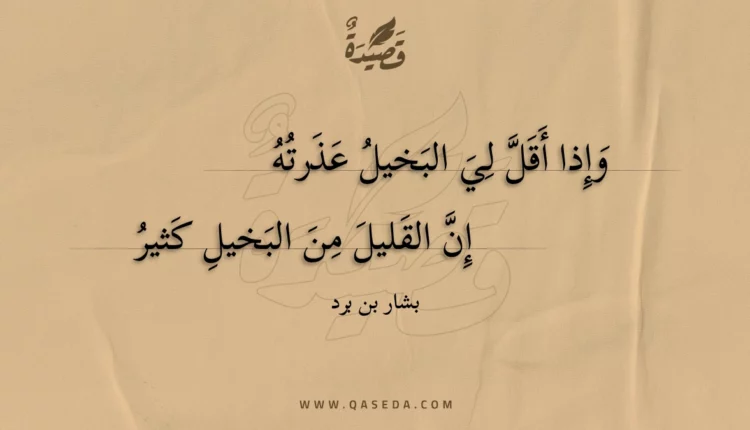 قَصِيْدَةٌ
وَإِذا أَقَلَّ لِيَ البَخيلُ عَذَرتُهُ
إِنَّ القَليلَ مِنَ البَخيلِ كَثيرُ
بشار بن برد
WWW.QASEDA.COM